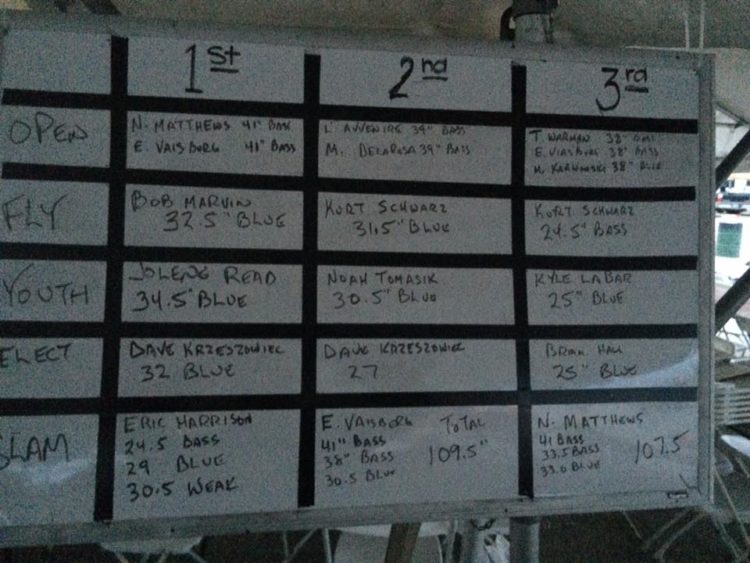 1st 2nd 3rd
OPEN
N. MATTHEWS 41" BASS
E. VAISBURG 41" BASS
L. AVVENIRE 39" BASS
M. DELAROSA 39" BASS
T. WARMAN 38"
E. VIASBURG 38" BASS
M. KARNOWSKI 38" BLUE
FLY
BOB MARVIN
32.5" BLUE
KURT SCHWARZ
31.5" BLUE
KURT SCHWARZ
24.5" BASS
YOUTH
JOLENE READ
34.5" BLUE
NOAH TOMASIK
30.5" BLUE
KYLE LABAR
25" BLUE
ELECT
DAVE KRZESZOWIEC
32 BLUE
DAVE KRZESZOWIEC
27
BRIAN HALL
25" BLUE
SLAM
ERIC HARRISON
24.5 BASS
29 BLUE
30.5 WEAK
E. VAISBERG TOTAL
41" BASS
38" BASS 109.5"
30.5 BLUE
N. MATTHEWS
41 BASS
33.5 BASS 107.5
33.0 BLUE